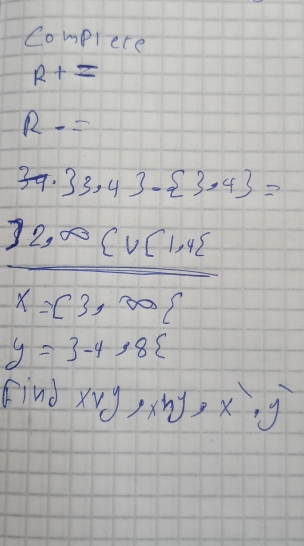 Complete
R+ =
R- =
]3,4} - {3,4} =
]2,∞[ ∪ [1,4[
X = [3, ∞[
y = ]-4, 8[
Find x∪y, x∩y, x`, y`